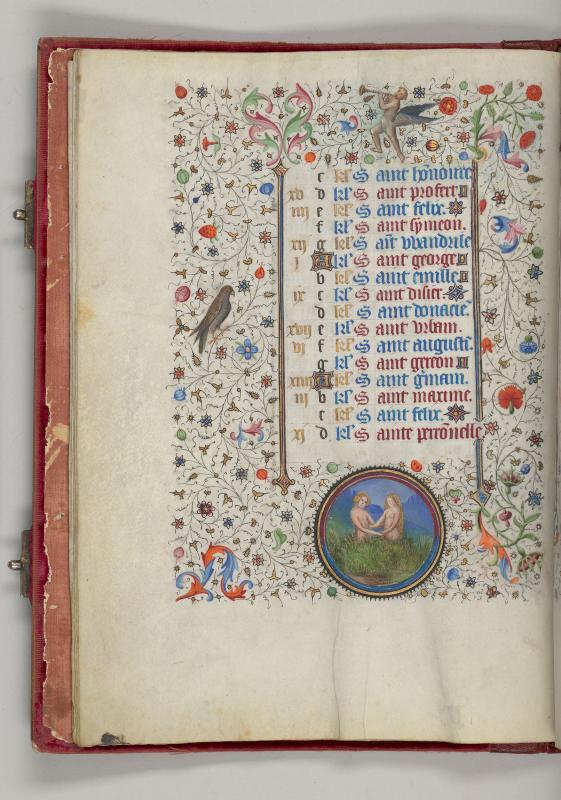 c kł' S aint honoure
xv d kł' S aint profert
iiij e kł' S aint felix.
f kł' S aint symeon.
xij g kł' S aīt wandrile
i A kł' S aint george
b kł' S aint emille
ix c kł' S aint disier.
d kł' S aint donacie.
xvij e kł' S aint vrbain.
vj f kł' S aint augusti.
g kł' S aint gereon
xiiij A kł' S aint g'main.
iij b kł' S aint maxime.
c kł' S aint felix.
xj d kł' S ainte perronelle